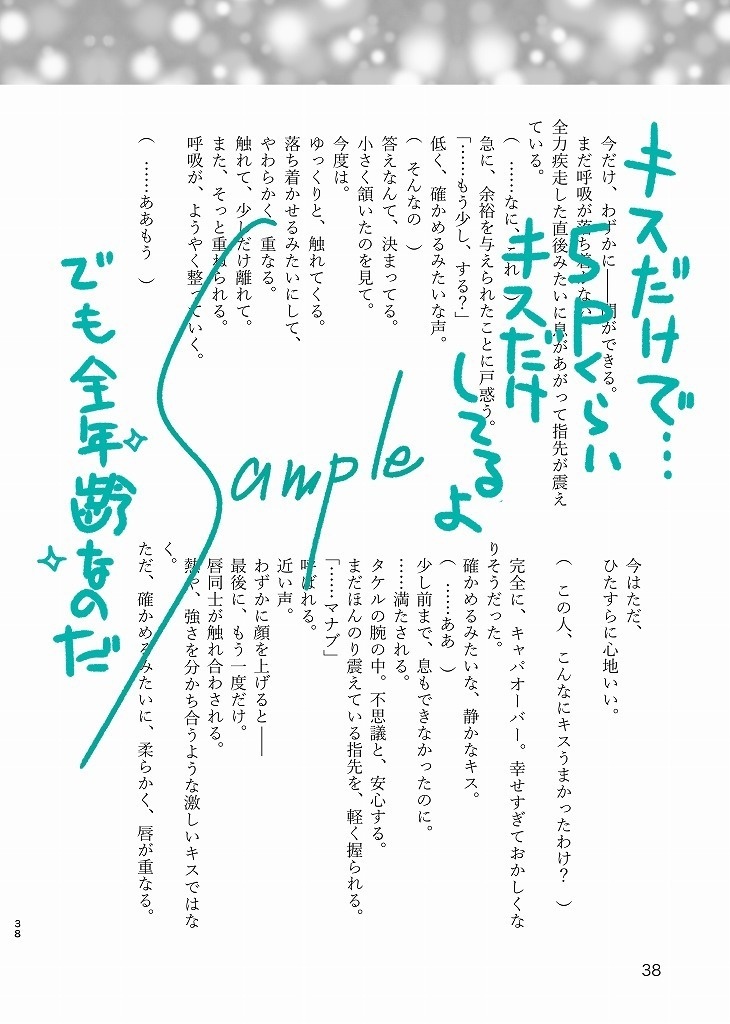 キスだけで…
5Pくらい
キスだけ
してるよ
Sample
でも全年齢なのだ
今だけ、わずかに――間ができる。
まだ呼吸が落ち着かない。
全力疾走した直後みたいに息があがって指先が震え
ている。
( ……なに、これ )
急に、余裕を与えられたことに戸惑う。
「……もう少し、する?」
低く、確かめるみたいな声。
( そんなの )
答えなんて、決まってる。
小さく頷いたのを見て。
今度は。
ゆっくりと、触れてくる。
落ち着かせるみたいにして、
やわらかく、重なる。
触れて、少しだけ離れて。
また、そっと重ねられる。
呼吸が、ようやく整っていく。
( ……ああもう )
今はただ、
ひたすらに心地いい。
( この人、こんなにキスうまかったわけ? )
完全に、キャパオーバー。幸せすぎておかしくな
りそうだった。
確かめるみたいな、静かなキス。
( ……ああ )
少し前まで、息もできなかったのに。
……満たされる。
タケルの腕の中。不思議と、安心する。
まだほんのり震えている指先を、軽く握られる。
「……マナブ」
呼ばれる。
近い声。
わずかに顔を上げると――
最後に、もう一度だけ。
唇同士が触れ合わされる。
熱や、強さを分かち合うような激しいキスではな
く。
ただ、確かめるみたいに、柔らかく、唇が重なる。
38
38